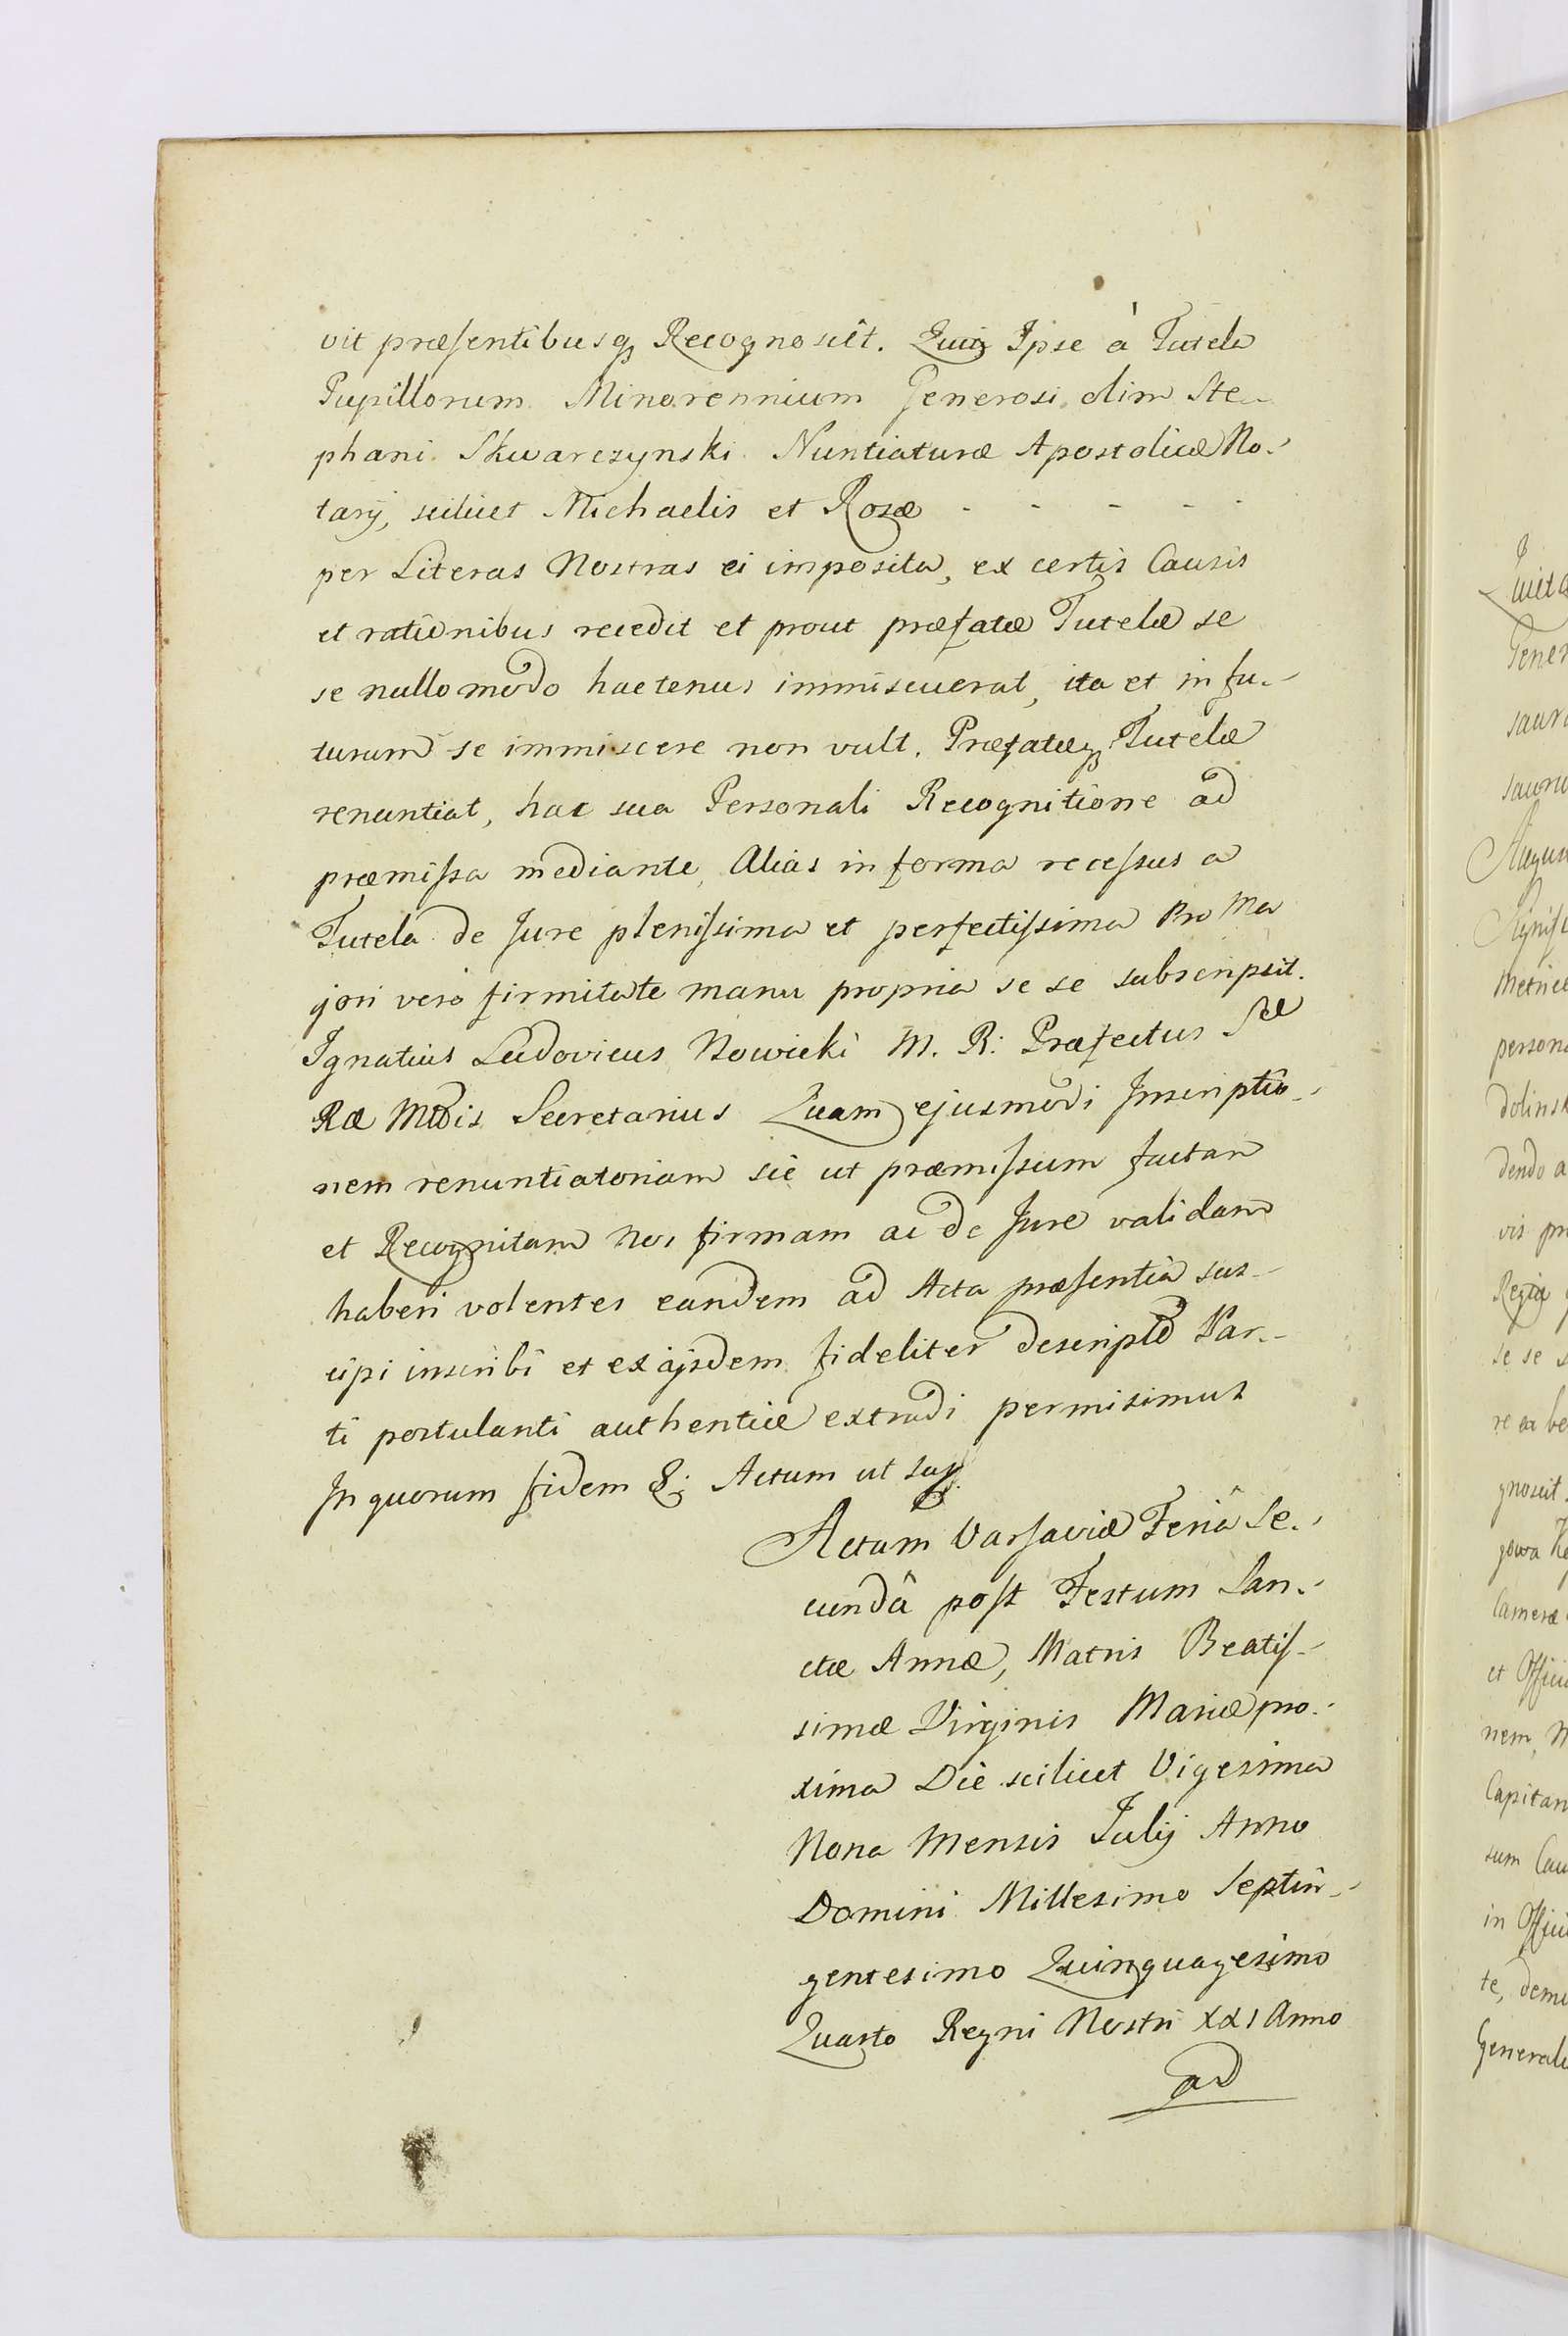 vit præsentibusq; Recognoscit. Quiq; Ipse à Tutela
Pupillorum Minorennium Generosi olim Ste-
phani Skwarczynski Nuntiaturæ Apostolicæ No-
tarij, scilicet Michaelis et Rosæ - - - - -
per Literas Nostras ei imposita, ex certis Causis
et rationibus recedit et prout præfatæ Tutelæ se
se nullo modo hactenus immiscuerat, ita et in fu-
turum se immiscere non vult. Præfatæq; Tutelæ
renuntiat, hac sua Personali Recognitione ad
præmissa mediante, Alias in forma recessus a
Tutela de Jure plenissima et perfectissima Pro Ma
jori vero firmitate manu propria se se subscripsit.
Ignatius Ludovicus Nowicki M. R: Præfectus Sæ
Ræ Mtis Secretarius Quam ejusmodi Inscriptio-
nem renuntiatoriam sic ut præmissum factam
et Recognitam nos firmam ac de Jure validam
haberi volentes eandem ad Acta præsentia sus-
cipi inscribi et ex ijsdem fideliter descriptã Par-
ti postulanti authentice extradi permisimus
In quorum fidem &; Actum ut sup.
Actum Varsaviæ Feriâ Se-
cundâ post Festum San-
ctæ Annæ, Matris Beatis-
simæ Virginis Mariæ pro-
xima Die scilicet Vigesima
Nona Mensis Julij Anno
Domini Millesimo Septin-
gentesimo Quinquagesimo
Quarto Regni Nostri XXI Anno
ad